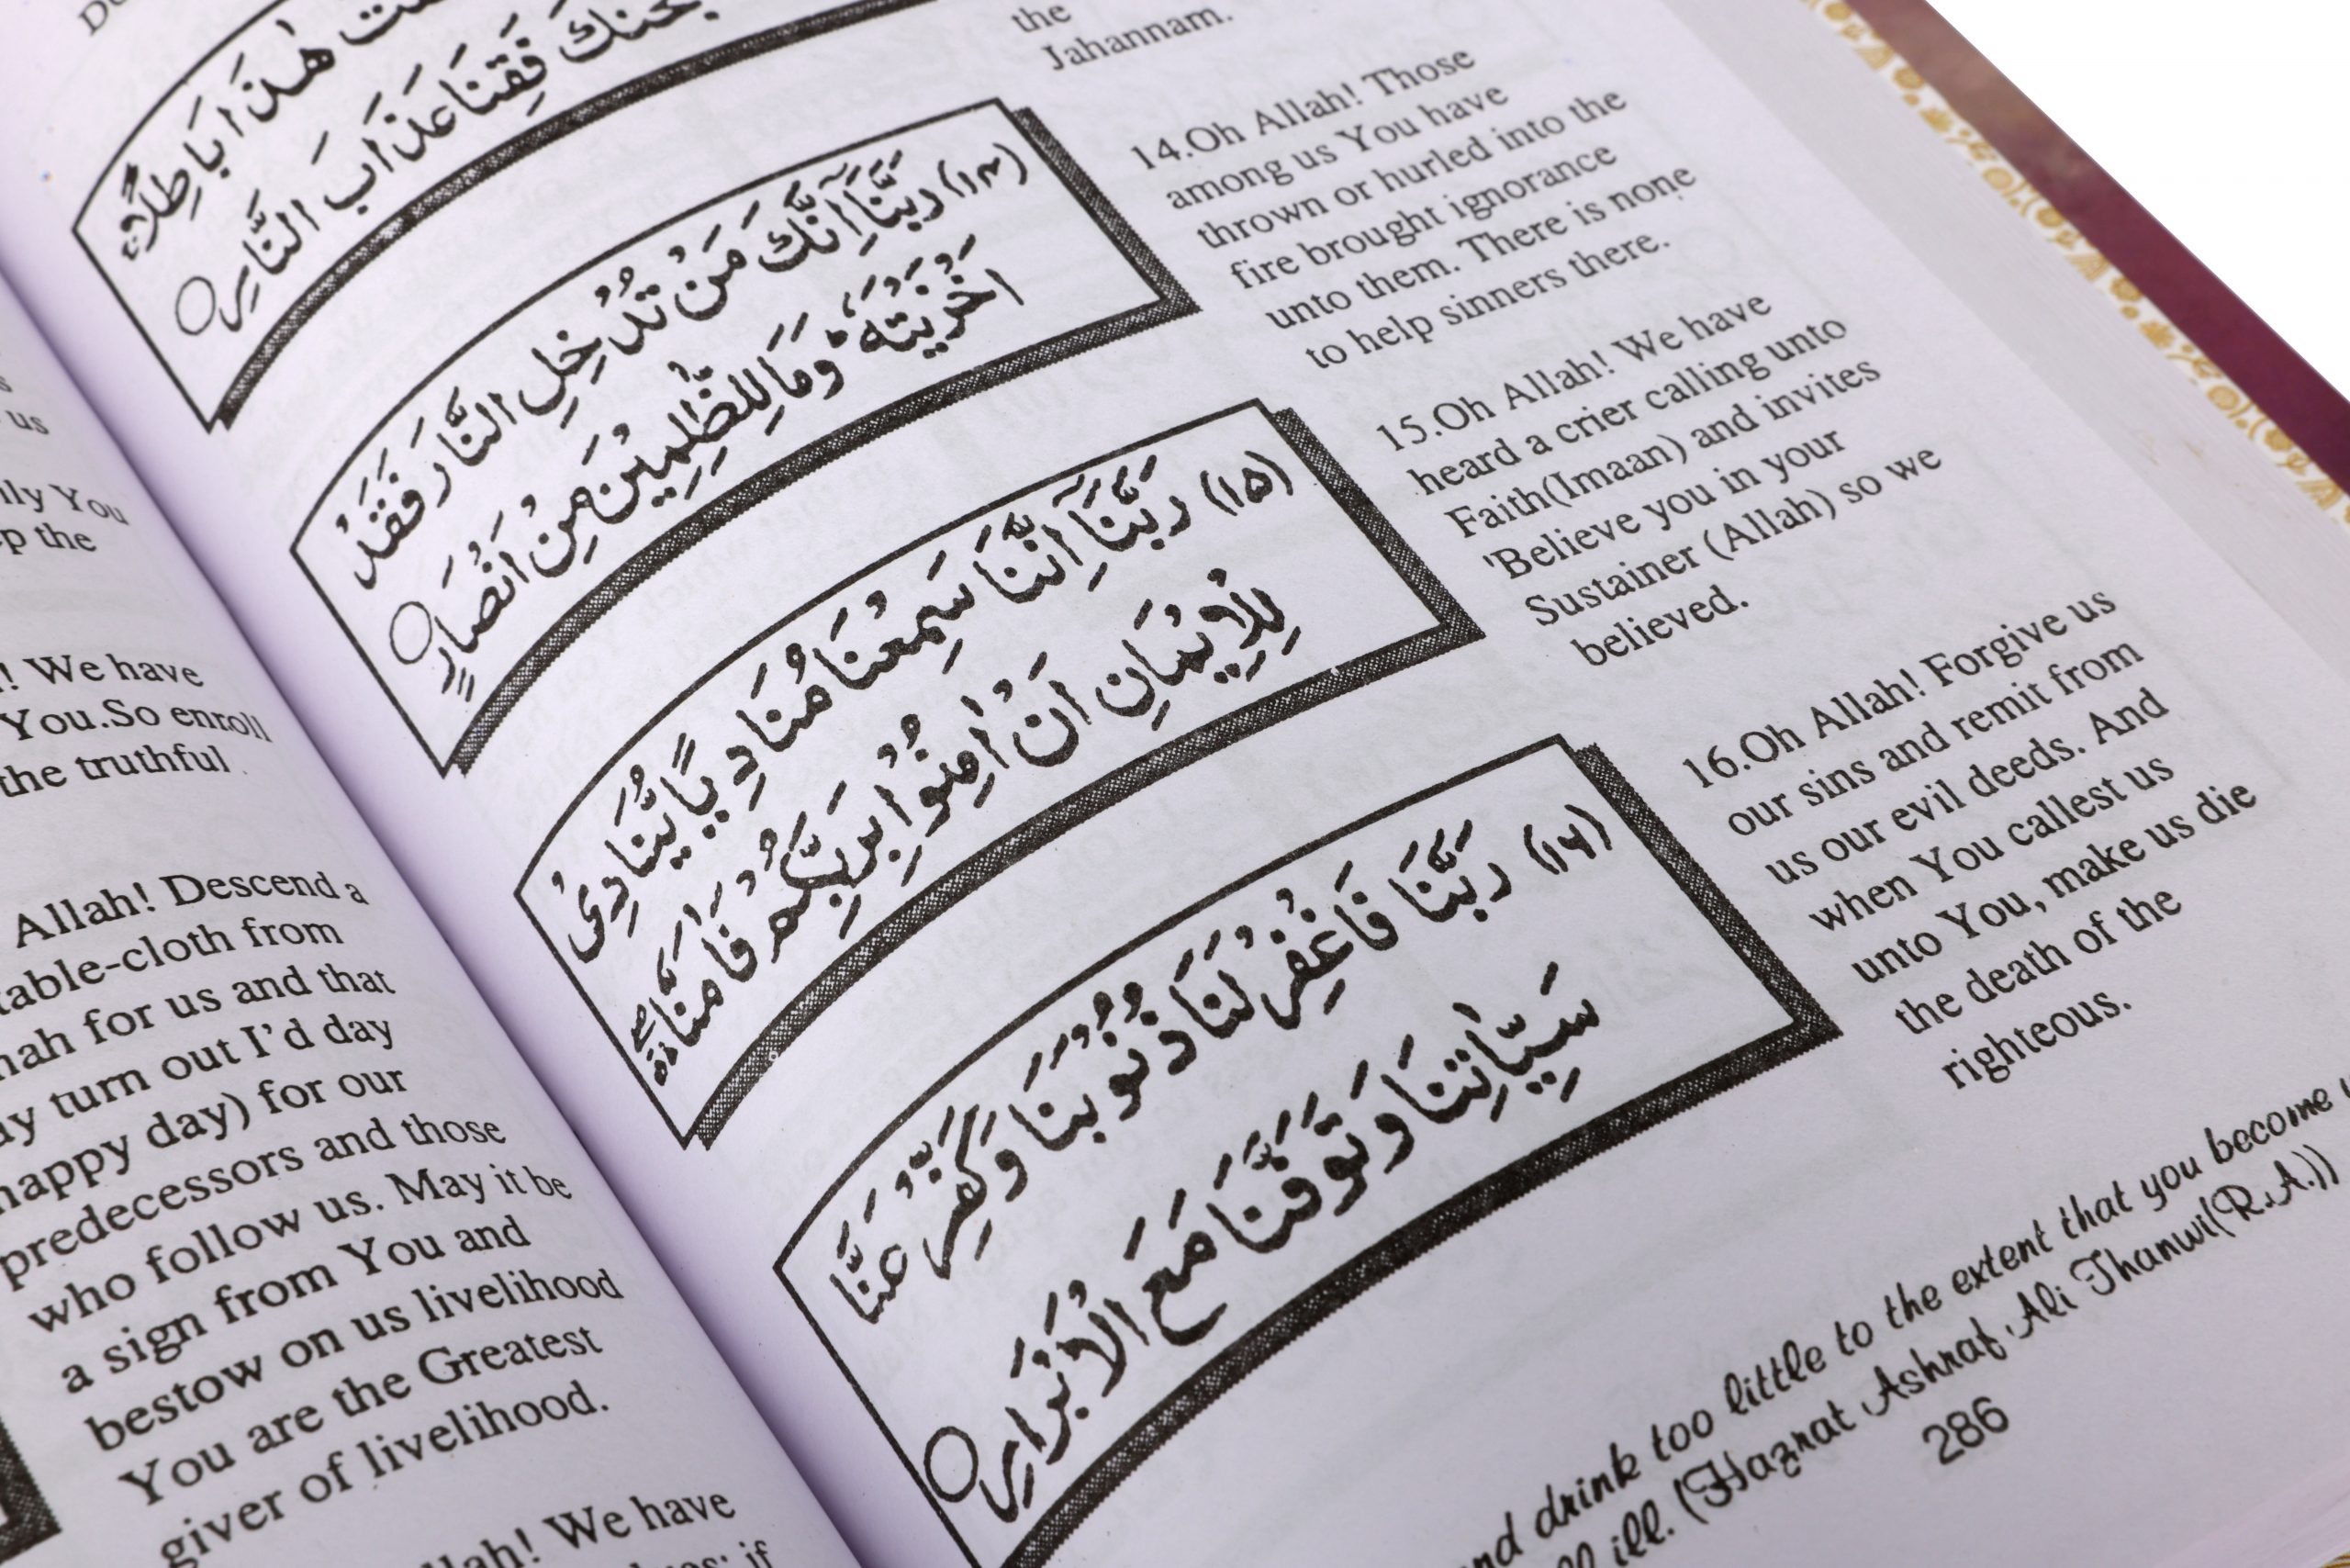 us
You
p the
! We have
You.So enroll
the truthful.
Allah! Descend a
table-cloth from
for us and that
turn out I'd day
happy day) for our
predecessors and those
who follow us. May it be
a sign from You and
bestow on us livelihood
You are the Greatest
giver of livelihood.
We have
if
هٰذَا بَاطِلًاۚ
فَقِنَا عَذَابَ النَّارِ
(۱۴) رَبَّنَاۤ اِنَّكَ مَنْ تُدْخِلِ النَّارَ فَقَدْ
اَخْزَيْتَهٗ ؕ وَمَا لِلظّٰلِمِيْنَ مِنْ اَنْصَارٍ
(۱۵) رَبَّنَاۤ اِنَّنَا سَمِعْنَا مُنَادِيًا يُّنَادِىْ
لِلْاِيْمَانِ اَنْ اٰمِنُوْا بِرَبِّكُمْ فَاٰمَنَّا
(۱۶) رَبَّنَا فَاغْفِرْ لَنَا ذُنُوْبَنَا وَكَفِّرْ عَنَّا
سَيِّاٰتِنَا وَتَوَفَّنَا مَعَ الْاَبْرَارِ
the
Jahannam.
14.Oh Allah! Those
among us You have
thrown or hurled into the
fire brought ignorance
unto them. There is none
to help sinners there.
15.Oh Allah! We have
heard a crier calling unto
Faith(Imaan) and invites
'Believe you in your
Sustainer (Allah) so we
believed.
16.Oh Allah! Forgive us
our sins and remit from
us our evil deeds. And
when You callest us
unto You, make us die
the death of the
righteous.
drink too little to the extent that you become
ill. (Hazrat Ashraf Ali Thanwi(R.A.))
286